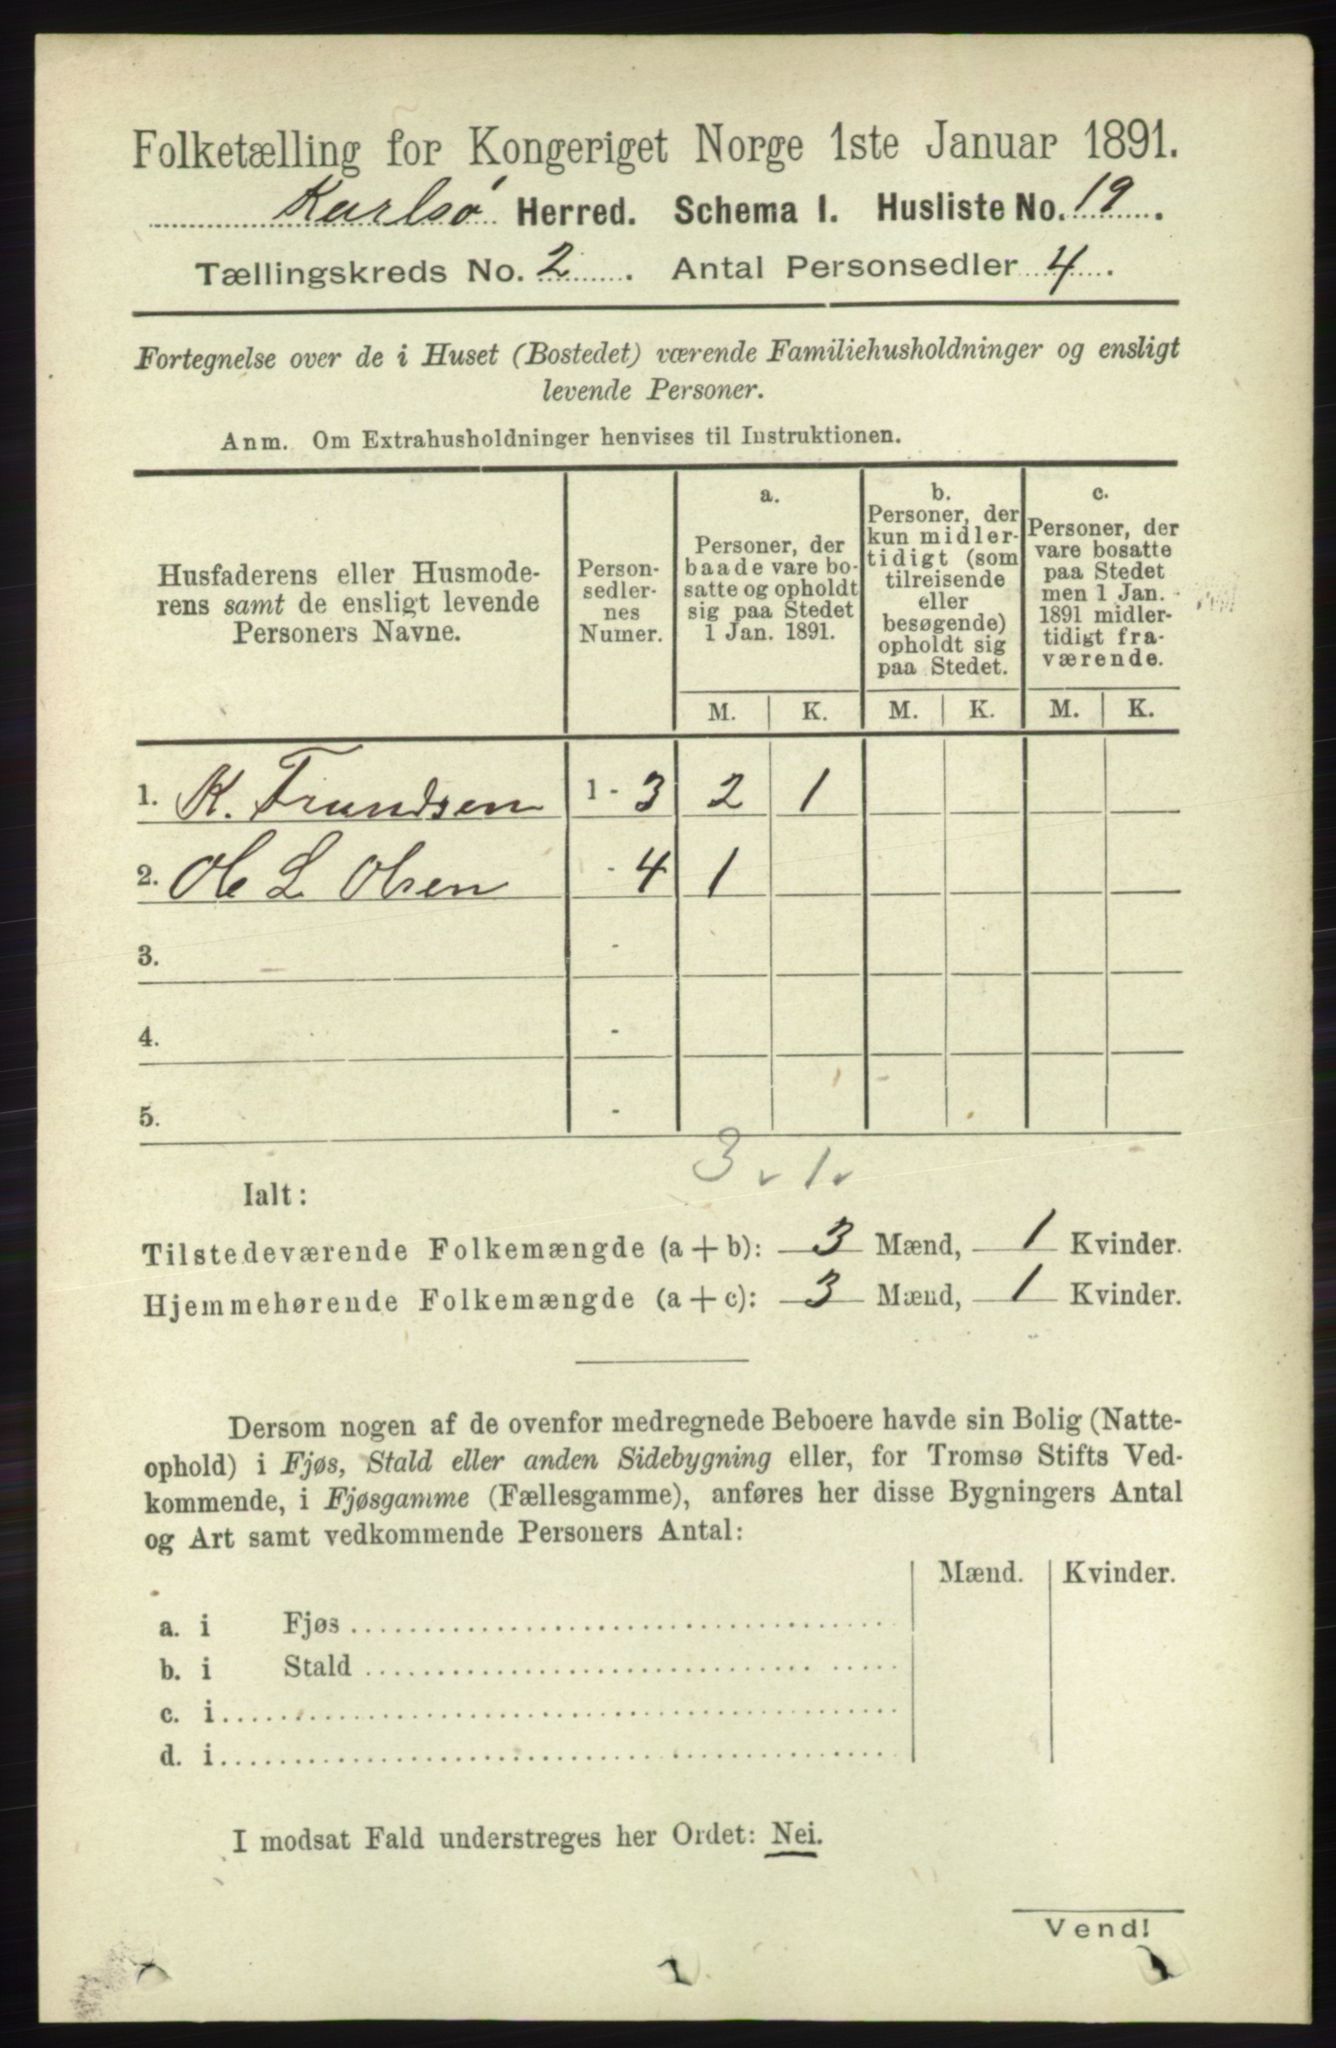 Folketælling for Kongeriget Norge 1ste Januar 1891.
Karlsø Herred. Schema I. Husliste No. 19.
Tællingskreds No. 2. Antal Personsedler 4.
Fortegnelse over de i Huset (Bostedet) værende Familiehusholdninger og ensligt
levende Personer.
Anm. Om Extrahusholdninger henvises til Instruktionen.
Husfaderens eller Husmode-
rens samt de ensligt levende
Personers Navne.
Person-
sedler-
nes
Numer.
a.
Personer, der
baade vare bo-
satte og opholdt
sig paa Stedet
1 Jan. 1891.
b.
Personer, der
kun midler-
tidigt (som
tilreisende
eller
besøgende)
opholdt sig
paa Stedet.
c.
Personer, der
vare bosatte
paa Stedet
men 1 Jan.
1891 midler-
tidigt fra-
værende.
M. K. M. K. M. K.
1. K. Trundsen 1 - 3 2 1
2. Ole L Olsen - 4 1
3. -
4. -
5. -
3 1
Ialt:
Tilstedeværende Folkemængde (a + b): 3 Mænd, 1 Kvinder.
Hjemmehørende Folkemængde (a + c): 3 Mænd, 1 Kvinder.
Dersom nogen af de ovenfor medregnede Beboere havde sin Bolig (Natte-
ophold) i Fjøs, Stald eller anden Sidebygning eller, for Tromsø Stifts Ved-
kommende, i Fjøsgamme (Fællesgamme), anføres her disse Bygningers Antal
og Art samt vedkommende Personers Antal:
Mænd. Kvinder.
a. i Fjøs
b. i Stald
c. i
d. i
I modsat Fald understreges her Ordet: Nei.
Vend!